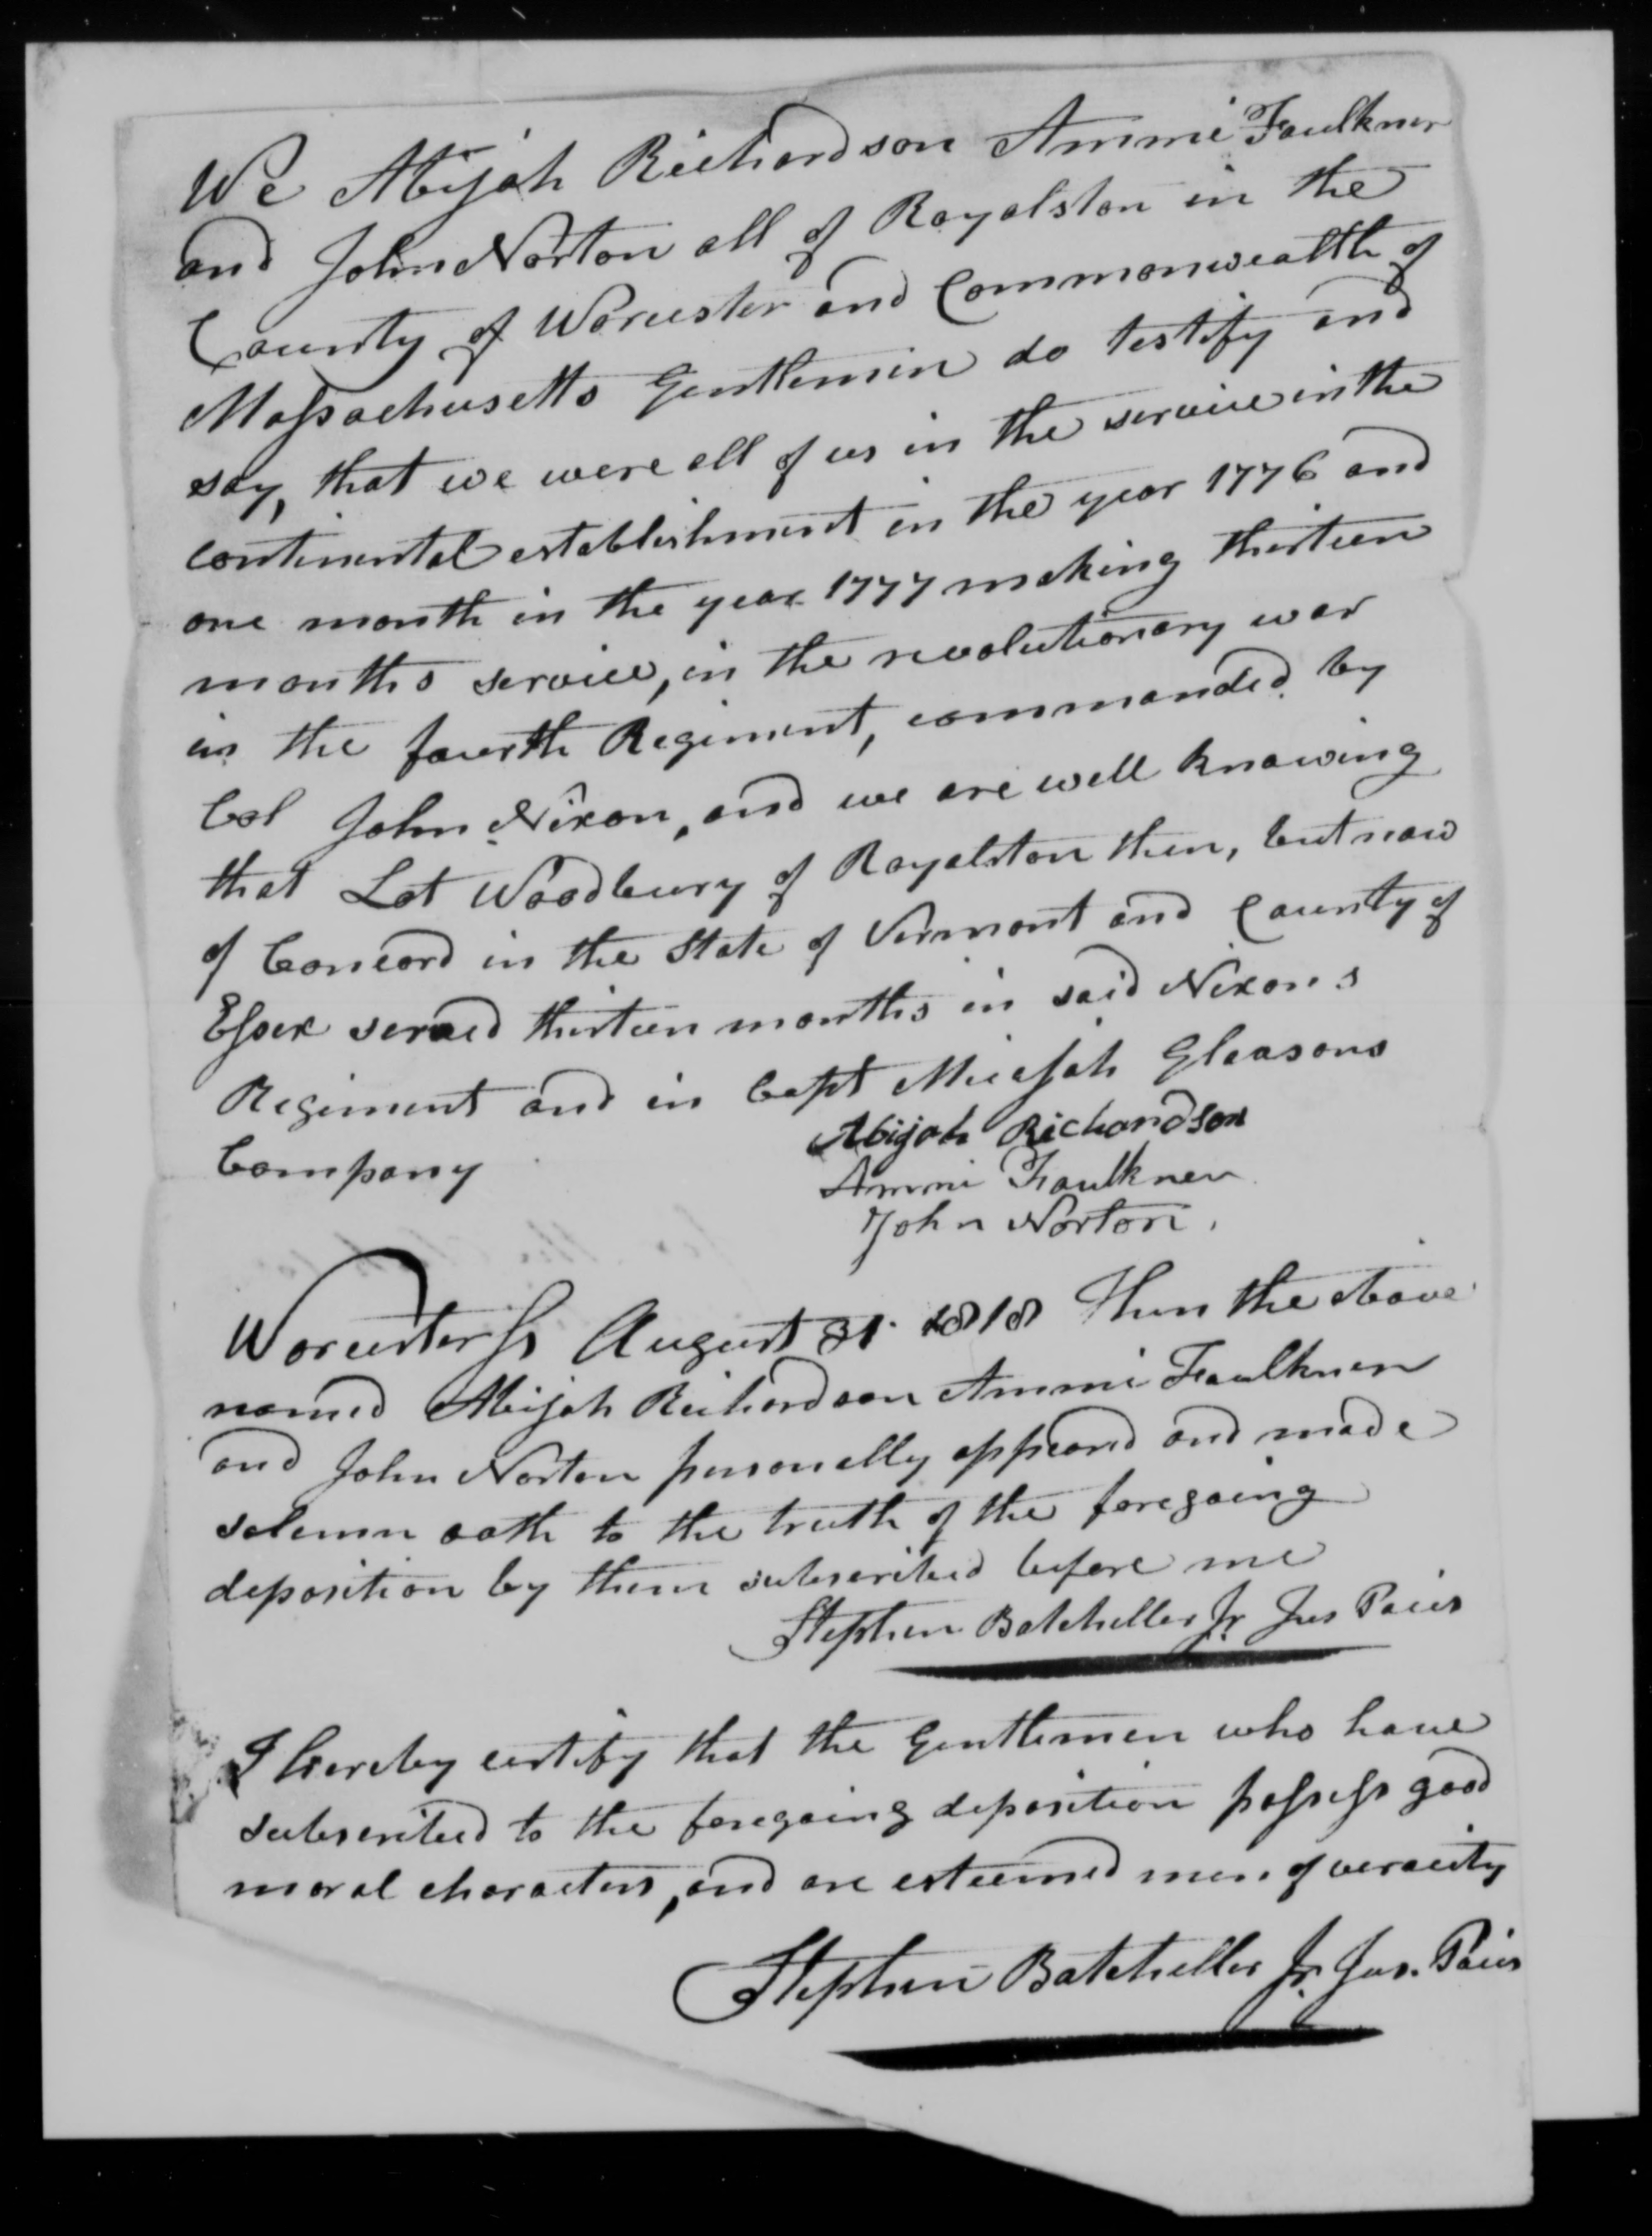 We Abijah Richardson Ammi Faulkner
and John Norton all of Royalston in the
County of Worcester and Commonwealth of
Massachusetts Gentlemen do testify and
say, that we were all of us in the service in the
continental establishment in the year 1776 and
one month in the year 1777 making thirteen
months service, in the revolutionary war
in the fourth Regiment, commanded by
Col John Nixon, and we are well knowing
that Lot Woodbury of Royalston then, but now
of Concord in the State of Vermont and County of
Essex served thirteen months in said Nixons
Regiment and in Capt Micajah Gleasons
Company
Abijah Richardson
Ammi Faulkner
John Norton.
Worcester Ss August 31. 1818 Then the above
named Abijah Richardson Ammi Faulkner
and John Norton personally appeared and made
solemn oath to the truth of the foregoing
deposition by them subscribed before me
Stephen Batcheller Jr Jus Pacis
I hereby certify that the Gentlemen who have
subscribed to the foregoing deposition possess good
moral characters, and are esteemed men of veracity
Stephen Batcheller Jr. Jus. Pacis